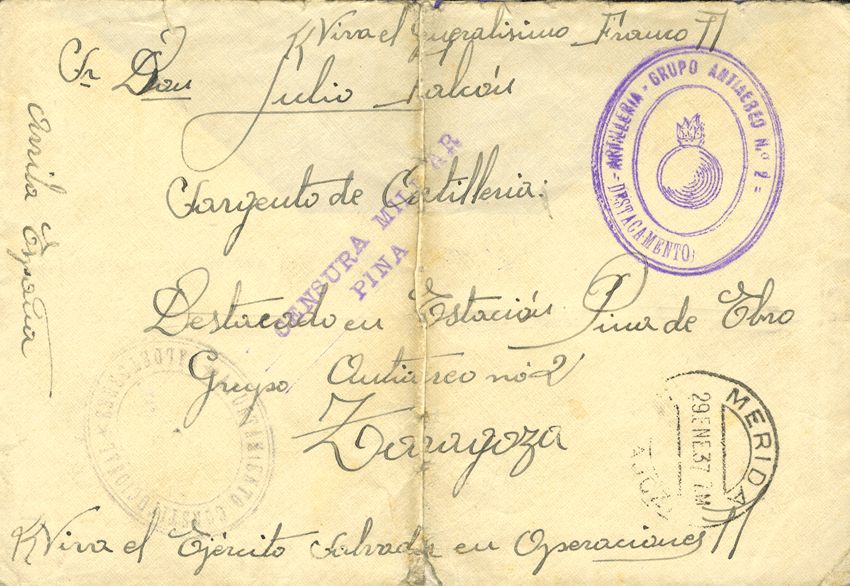 ¡¡Viva el Generalisimo Franco!!
Sr. Don
Julio Falcón
Sargento de Artilleria:
Destacado en Estación Pina de Ebro
Grupo Antiaereo nº 2
Zaragoza
¡¡Viva el Ejército Salvador en Operaciones!!
Arriba España
ARTILLERIA - GRUPO ANTIAEREO N.º 2 =
= DESTACAMENTO
CENSURA MILITAR
PINA
AYUNTAMIENTO CONSTITUCIONAL
MERIDA
29 ENE 37 7M